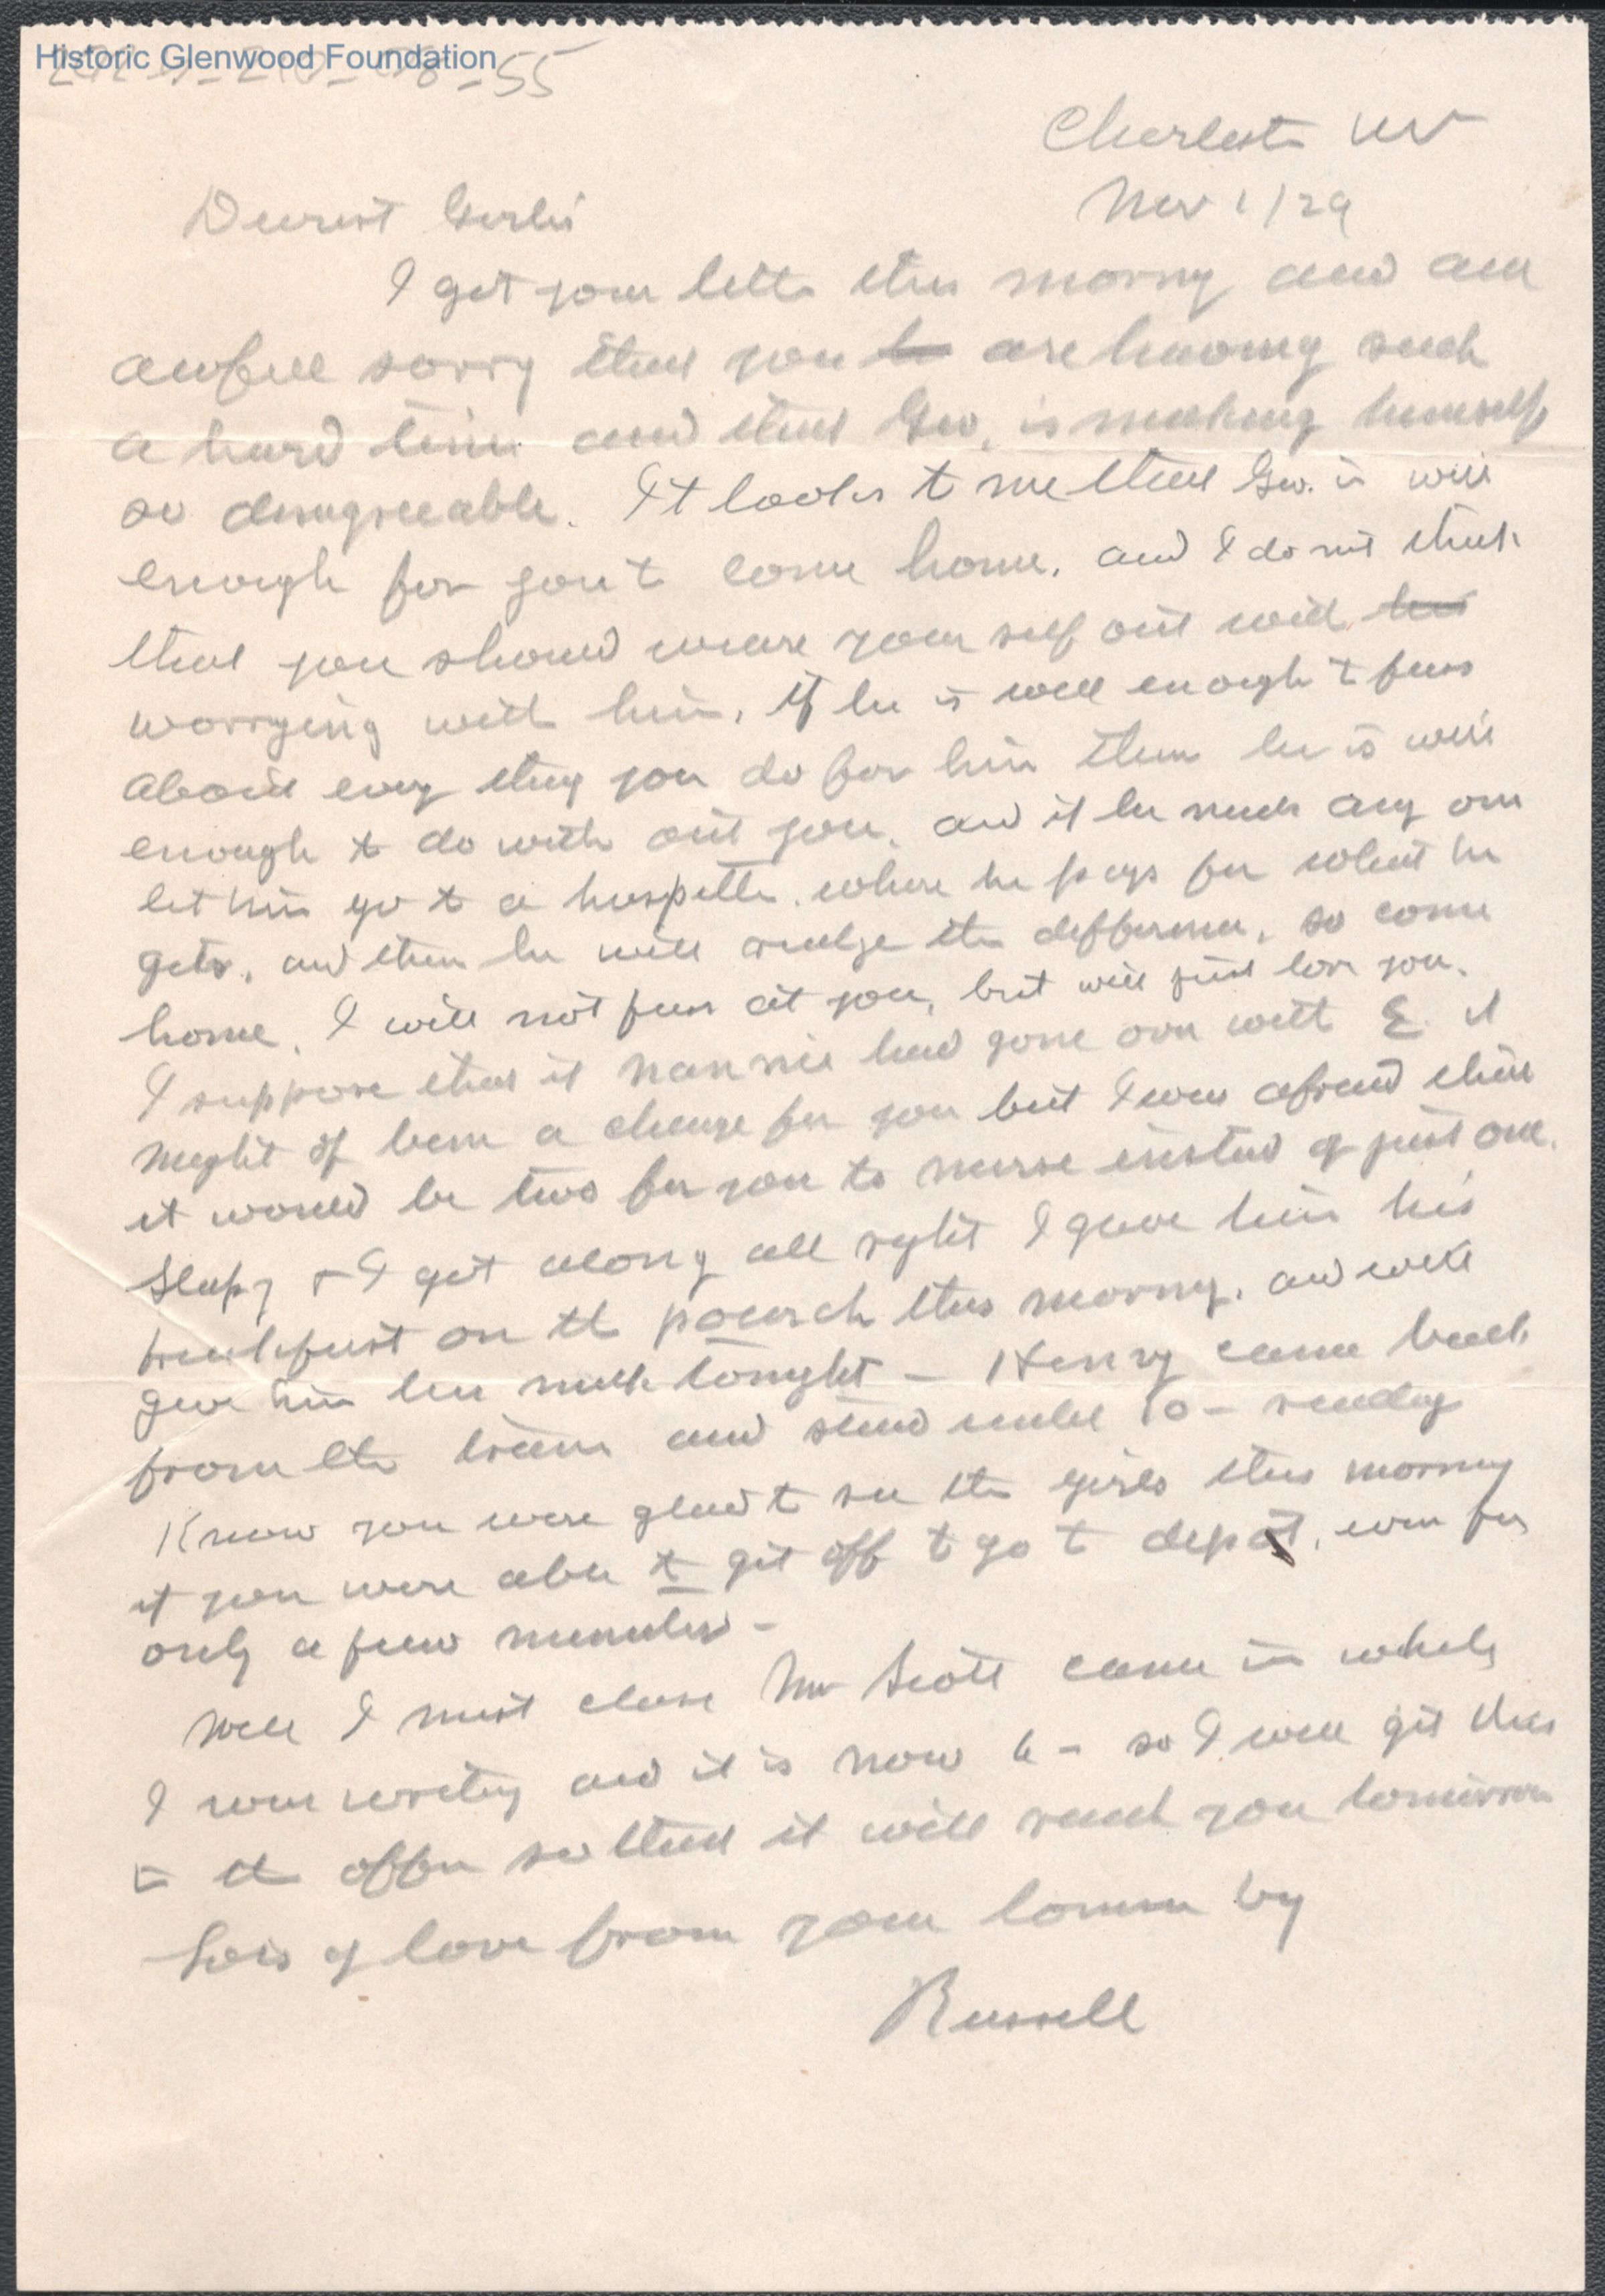 Historic Glenwood Foundation
55
Charleston WV
Nov 1/29
Dearest Girlie
I got your letter this morning and am
awfull sorry that you are having such
a hard time and that Geo. is making himself
so disagreeable. It looks to me that Geo. is well
enough for you to come home. and I do not think
that you should weare your self out with his
worrying with him, if he is well enough to fuss
about every thing you do for him then he is well
enough to do with out you, and if he needs any one
let him go to a hospittle. where he pays for what he
gets, and then he will realze the difference, so come
home. I will not fuss at you, but will just love you.
I suppose that if Nannie had gone over with E. it
might of been a change for you but I was afraid that
it would be two for you to nurse instead of just one.
& I get along all right I gave him his
breakfast on the pourch this morning, and will
give him his milk tonight - Henry came back
from the train and staid untel 10 - reading
Know you were glad to see the girls this morning
if you were able to get off to go to depot, even for
only a few minutes -
Well I must close Mr Scott came in while
I was writing and it is now 6 - so I will get this
in the office so that it will reach you tomorrow
Lots of love from your by
Russell